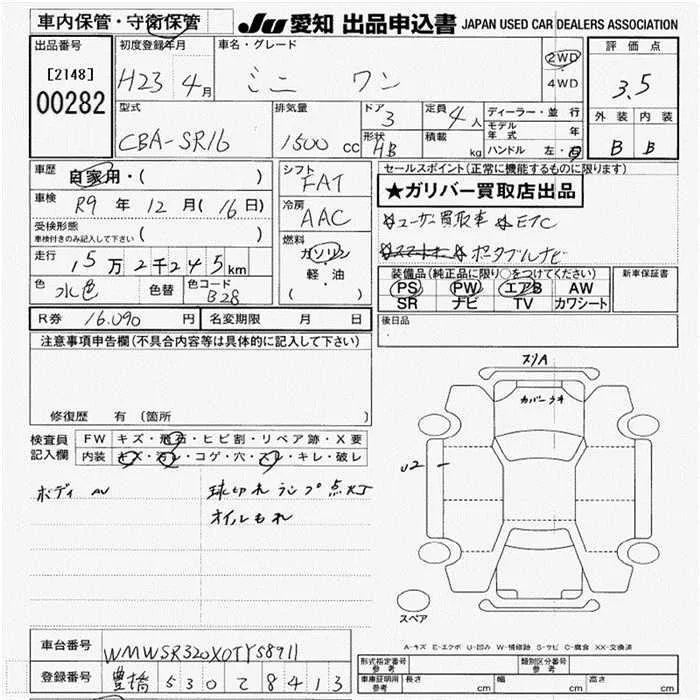 車内保管・守衛保管 JU 愛知 出品申込書 JAPAN USED CAR DEALERS ASSOCIATION
出品番号 初度登録年月 車名・グレード 評価点
[2148] H23 4月 ミニ ワン 2WD 4WD 3.5
00282 型式 排気量 ドア 3 定員 4人 ディーラー・並行 外装 内装
CBA-SR16 1500cc 形状 HB 積載 kg モデル年式 年 B B
ハンドル 左・右
車歴 自家用・( ) シフト FAT セールスポイント(正常に機能するものに限ります)
★ガリバー買取店出品
車検 R9年 12月(16日) 冷房 AAC ☆ユーザー買取車 ☆ETC
受検形態 車検付きのみ記入して下さい ( ) 燃料 ガソリン ☆ポータブルナビ
走行 15万2千245km 軽・油 ( ) 装備品(純正品に限り○をつけてください) 新車保証書
色 水色 色替 色コード B28 PS PW エアB AW
SR ナビ TV カワシート
R券 16,090円 名変期限 月 日 後日品
注意事項申告欄(不具合内容等は具体的に記入して下さい)
スリA
カバーウキ
修復歴 有 (箇所 )
検査員記入欄 FW キズ・飛石・ヒビ割・リペア跡・X要
内装 キズ・汚レ・コゲ・穴・スレ・キレ・破レ
U2
ボディ AU 球切れランプ点灯
オイルもれ
スペア
A-キズ E-エクボ U-凹み W-補修跡 S-サビ C-腐食 XX-交換済
車台番号 WMWSR320X0TY58911
登録番号 豊橋 530 て 8413
形式指定番号 参考 類別区分番号 参考
車庫証明用 参考 長さ cm 幅 cm 高さ cm